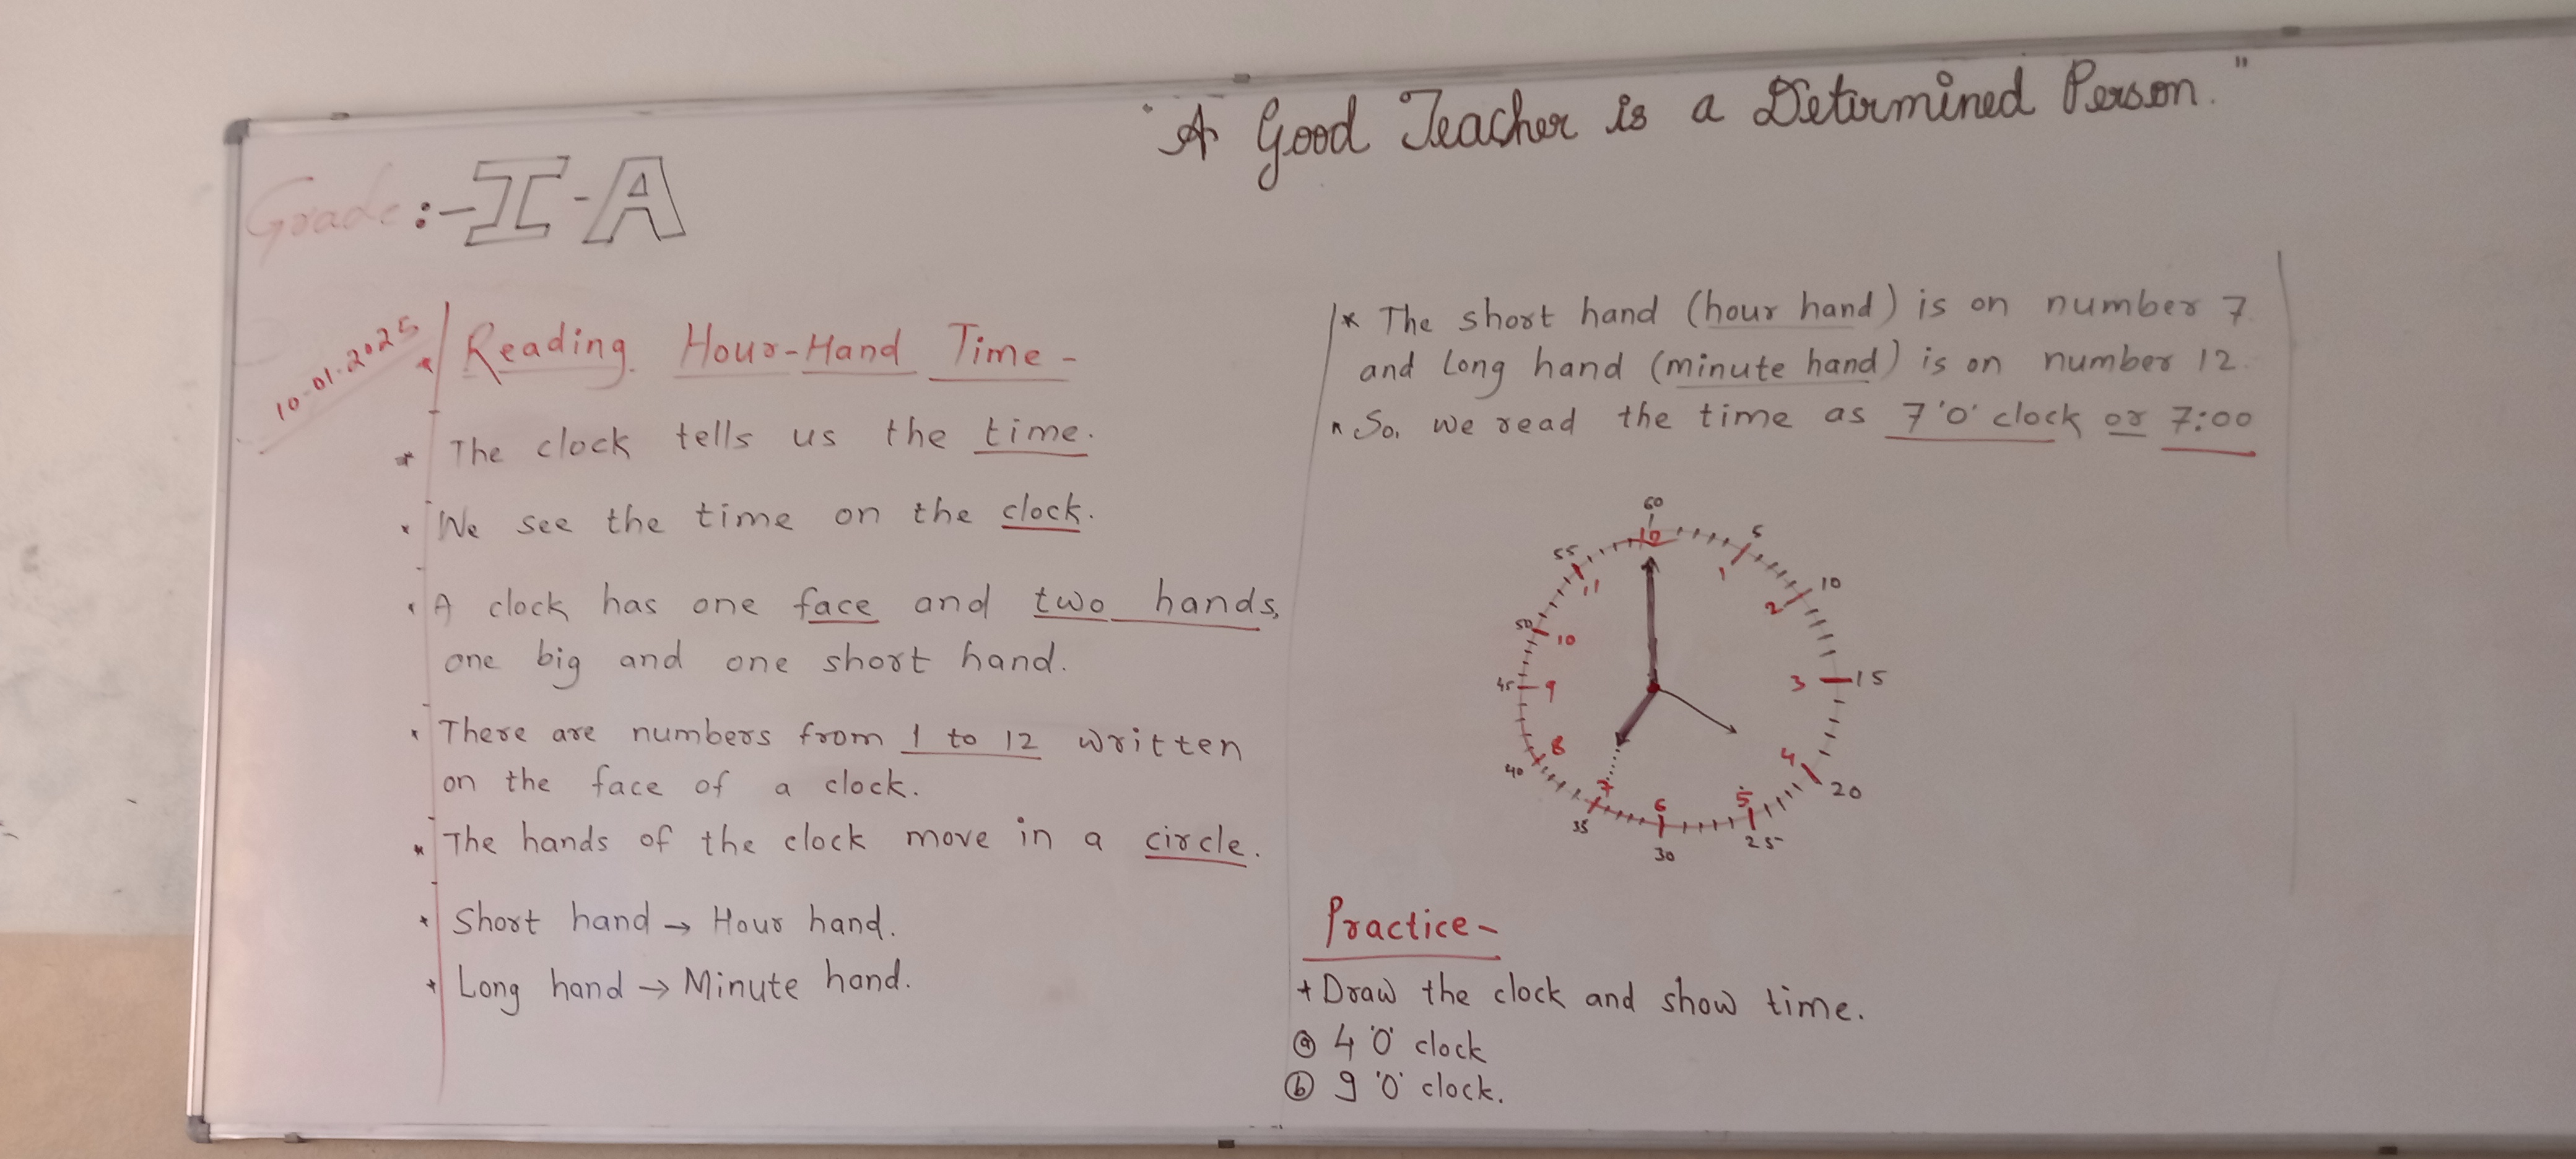 "A Good Teacher is a Determined Person."
Grade:-I-A
10-01-2025
* Reading Hour-Hand Time-
* The clock tells us the time.
* We see the time on the clock.
* A clock has one face and two hands,
one big and one short hand.
* There are numbers from 1 to 12 written
on the face of a clock.
* The hands of the clock move in a circle.
* Short hand → Hour hand.
* Long hand → Minute hand.
* The short hand (hour hand) is on number 7
and long hand (minute hand) is on number 12.
* So, we read the time as 7'O' clock or 7:00
60
12
55
5
11
1
10
2
50
10
45
9
3
15
8
4
40
20
7
6
5
35
30
25
Practice-
* Draw the clock and show time.
(a) 4 'O' clock
(b) 9 'O' clock.